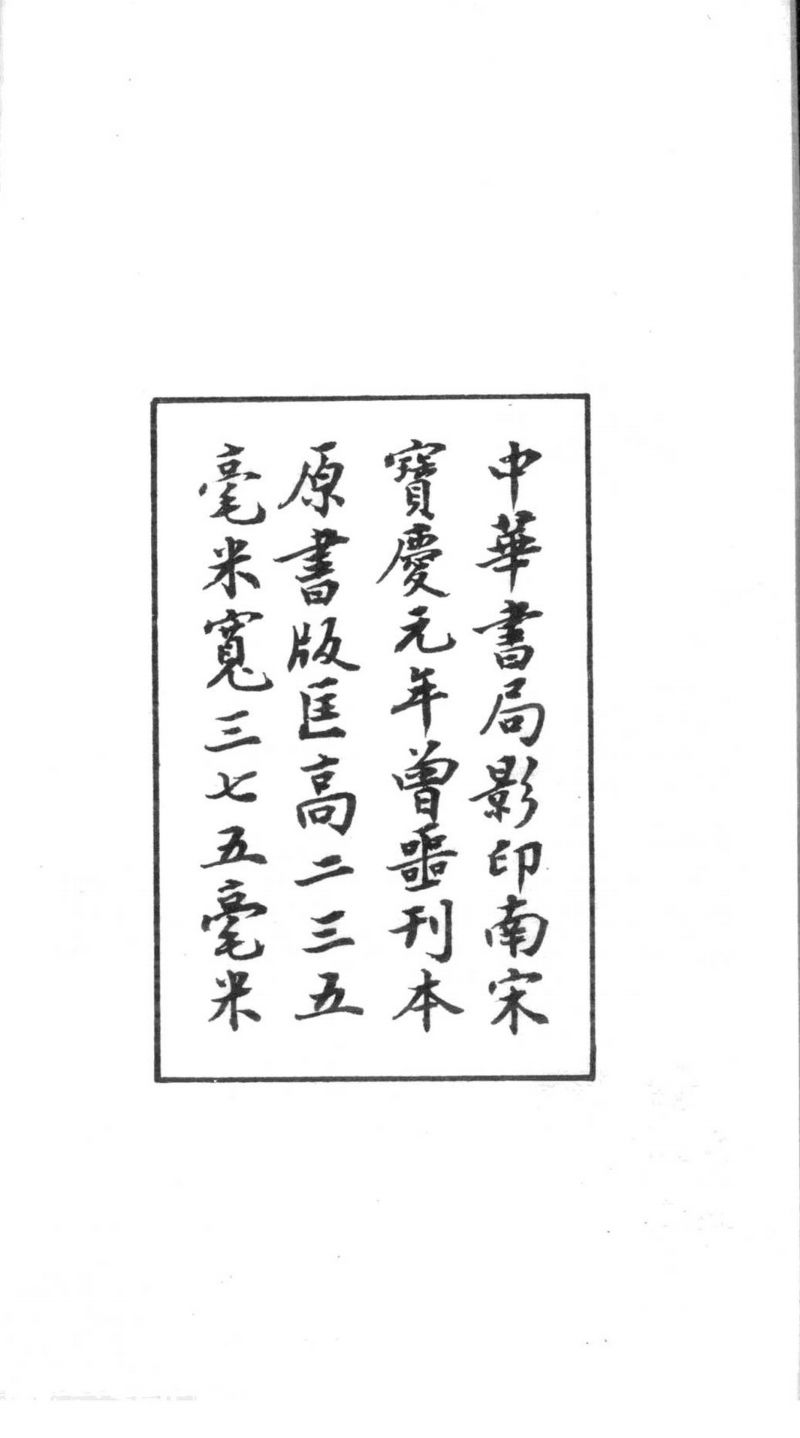 中華書局影印南宋
寶慶元年曾噩刊本
原書版匡高二三五
毫米寬三七五毫米